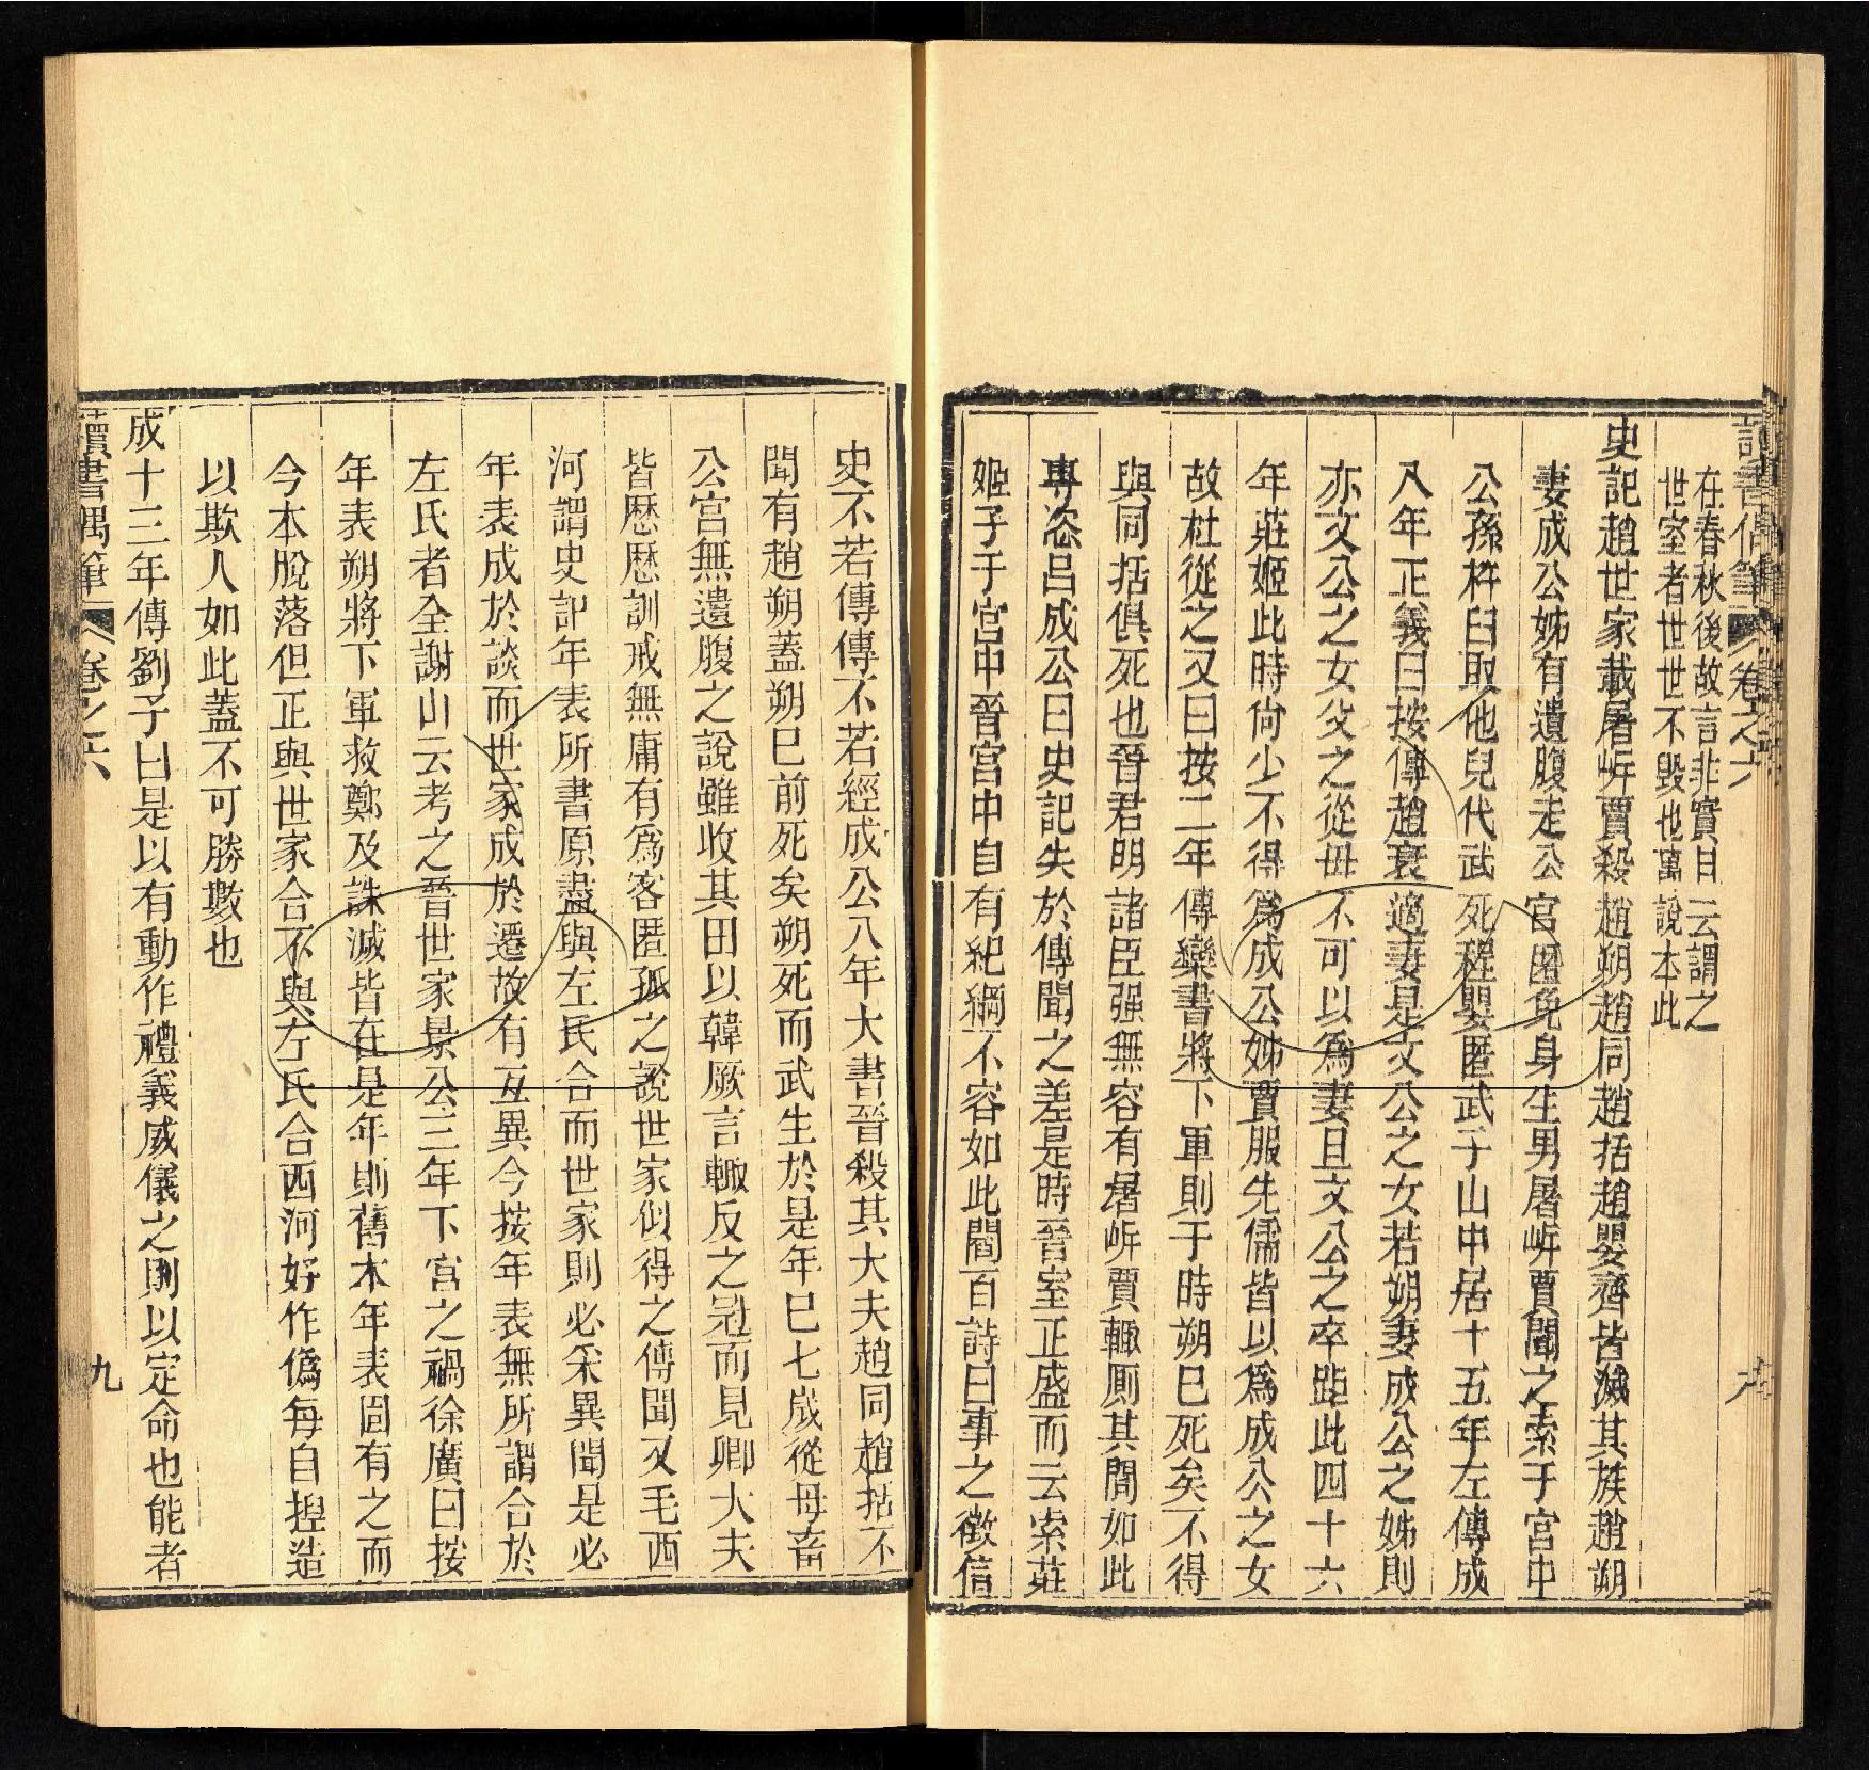 讀書偶筆 卷之六
在春秋後故言非實且云謂之
世室者世世不毀也萬說本此
史記趙世家載屠岸賈殺趙朔趙同趙括趙嬰齊皆滅其族趙朔
妻成公姊有遺腹走公宮匿免身生男屠岸賈聞之索于宮中
公孫杵臼取他兒代武死程嬰匿武于山中居十五年左傳成
八年正義曰按傳趙衰適妻是文公之女若朔妻成公之姊則
亦文公之女父之從母不可以爲妻且文公之卒距此四十六
年莊姬此時尙少不得爲成公姊賈服先儒皆以爲成公之女
故杜從之又曰按二年傳欒書將下軍則于時朔已死矣不得
與同括俱死也晉君明諸臣强無容有屠岸賈輒厠其間如此
專恣呂成公曰史記失於傳聞之差是時晉室正盛而云索莊
姬子于宮中晉宮中自有紀綱不容如此閻百詩曰事之徵信
史不若傳傳不若經成公八年大書晉殺其大夫趙同趙括不
聞有趙朔蓋朔已前死矣朔死而武生於是年已七歲從母畜
公宮無遺腹之說雖收其田以韓厥言輒反之冠而見卿大夫
皆歷歷訓戒無庸有爲客匿孤之說世家似得之傳聞又毛西
河謂史記年表所書原盡與左氏合而世家則必采異聞是必
年表成於談而世家成於遷故有互異今按年表無所謂合於
左氏者全謝山云考之晉世家景公三年下宮之禍徐廣曰按
年表朔將下軍救鄭及誅滅皆在是年則舊本年表固有之而
今本脫落但正與世家合不與左氏合西河好作僞每自揑造
以欺人如此蓋不可勝數也
成十三年傳劉子曰是以有動作禮義威儀之則以定命也能者
讀書偶筆 卷之六 九